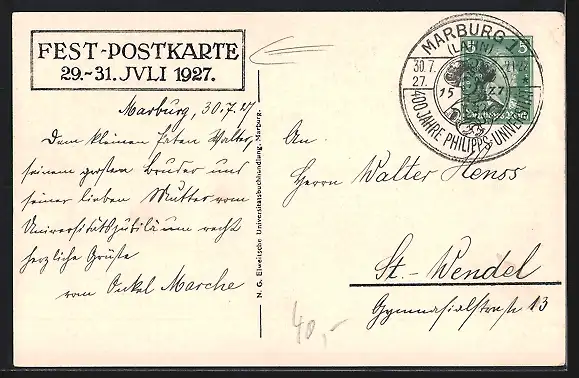 FEST-POSTKARTE
29.-31. JVLI 1927.
Marburg, 30.7.27
Dem kleinen Paten Walter,
seinem großen Bruder und
seiner lieben Mutter vom
Universitätsjubiläum recht
herzliche Grüße
vom Onkel Marche
N. G. Elwertsche Universitätsbuchhandlung, Marburg.
MARBURG 1
(LAHN)
30.7.
27.
15 27
400 JAHRE PHILIPPS-UNIVERSITÄT
5
An
Herrn Walter Henss
St. Wendel
Gymnasialstraße 13
40,-